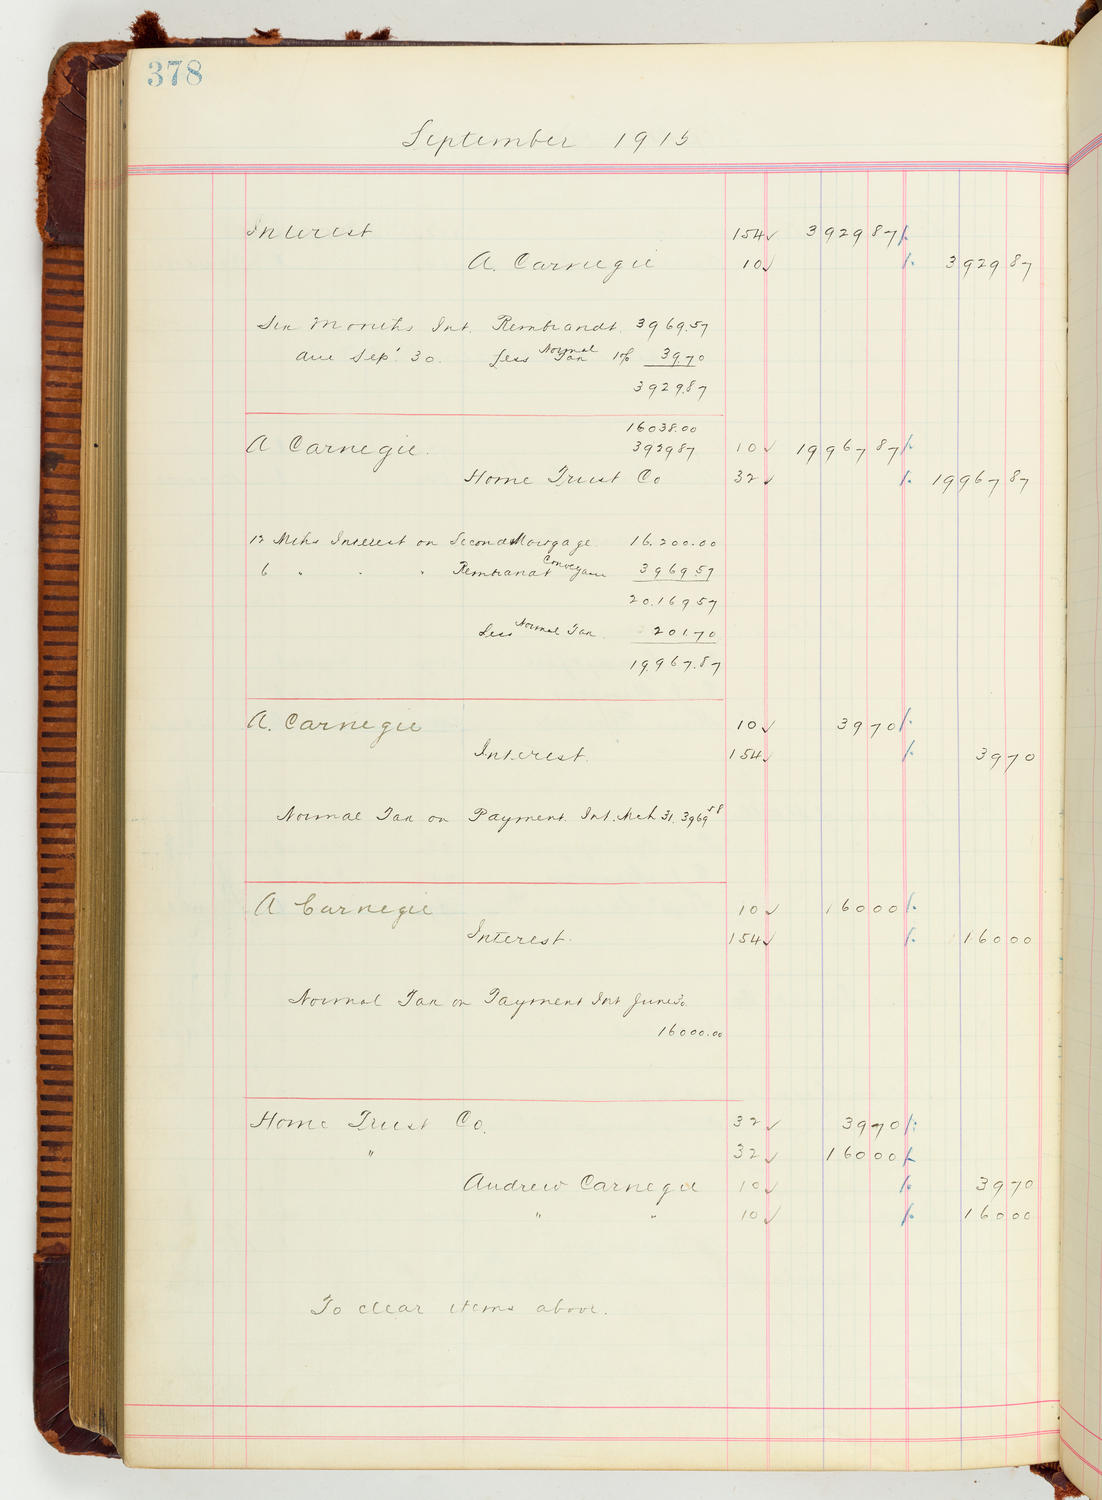 378
September 1915
Interest 154 ✓ 3929 87
A. Carnegie 10 ✓ 3929 87
Six Months Int. Rembrandt. 3969.57
due Sep. 30. Less Normal Tax 1% 39.70
3929.87
16038.00
A Carnegie. 3929 87 10 ✓ 19967 87
Home Trust Co 32 ✓ 19967 87
12 Mths Interest on Second Mortgage 16.200.00
6 " " " Rembrandt 3969.57
20.169 57
Less Normal Tax. 201.70
19.967.87
A. Carnegie 10 ✓ 39 70
Interest. 154 ✓ 39 70
Normal Tax on Payment Int. Mch 31. 3969 58
A Carnegie 10 ✓ 160 00
Interest. 154 ✓ 160 00
Normal Tax on Payment Int June 30
16000.00
Home Trust Co. 32 ✓ 39 70
" 32 ✓ 160 00
Andrew Carnegie 10 ✓ 39 70
" " 10 ✓ 160 00
To clear items above.